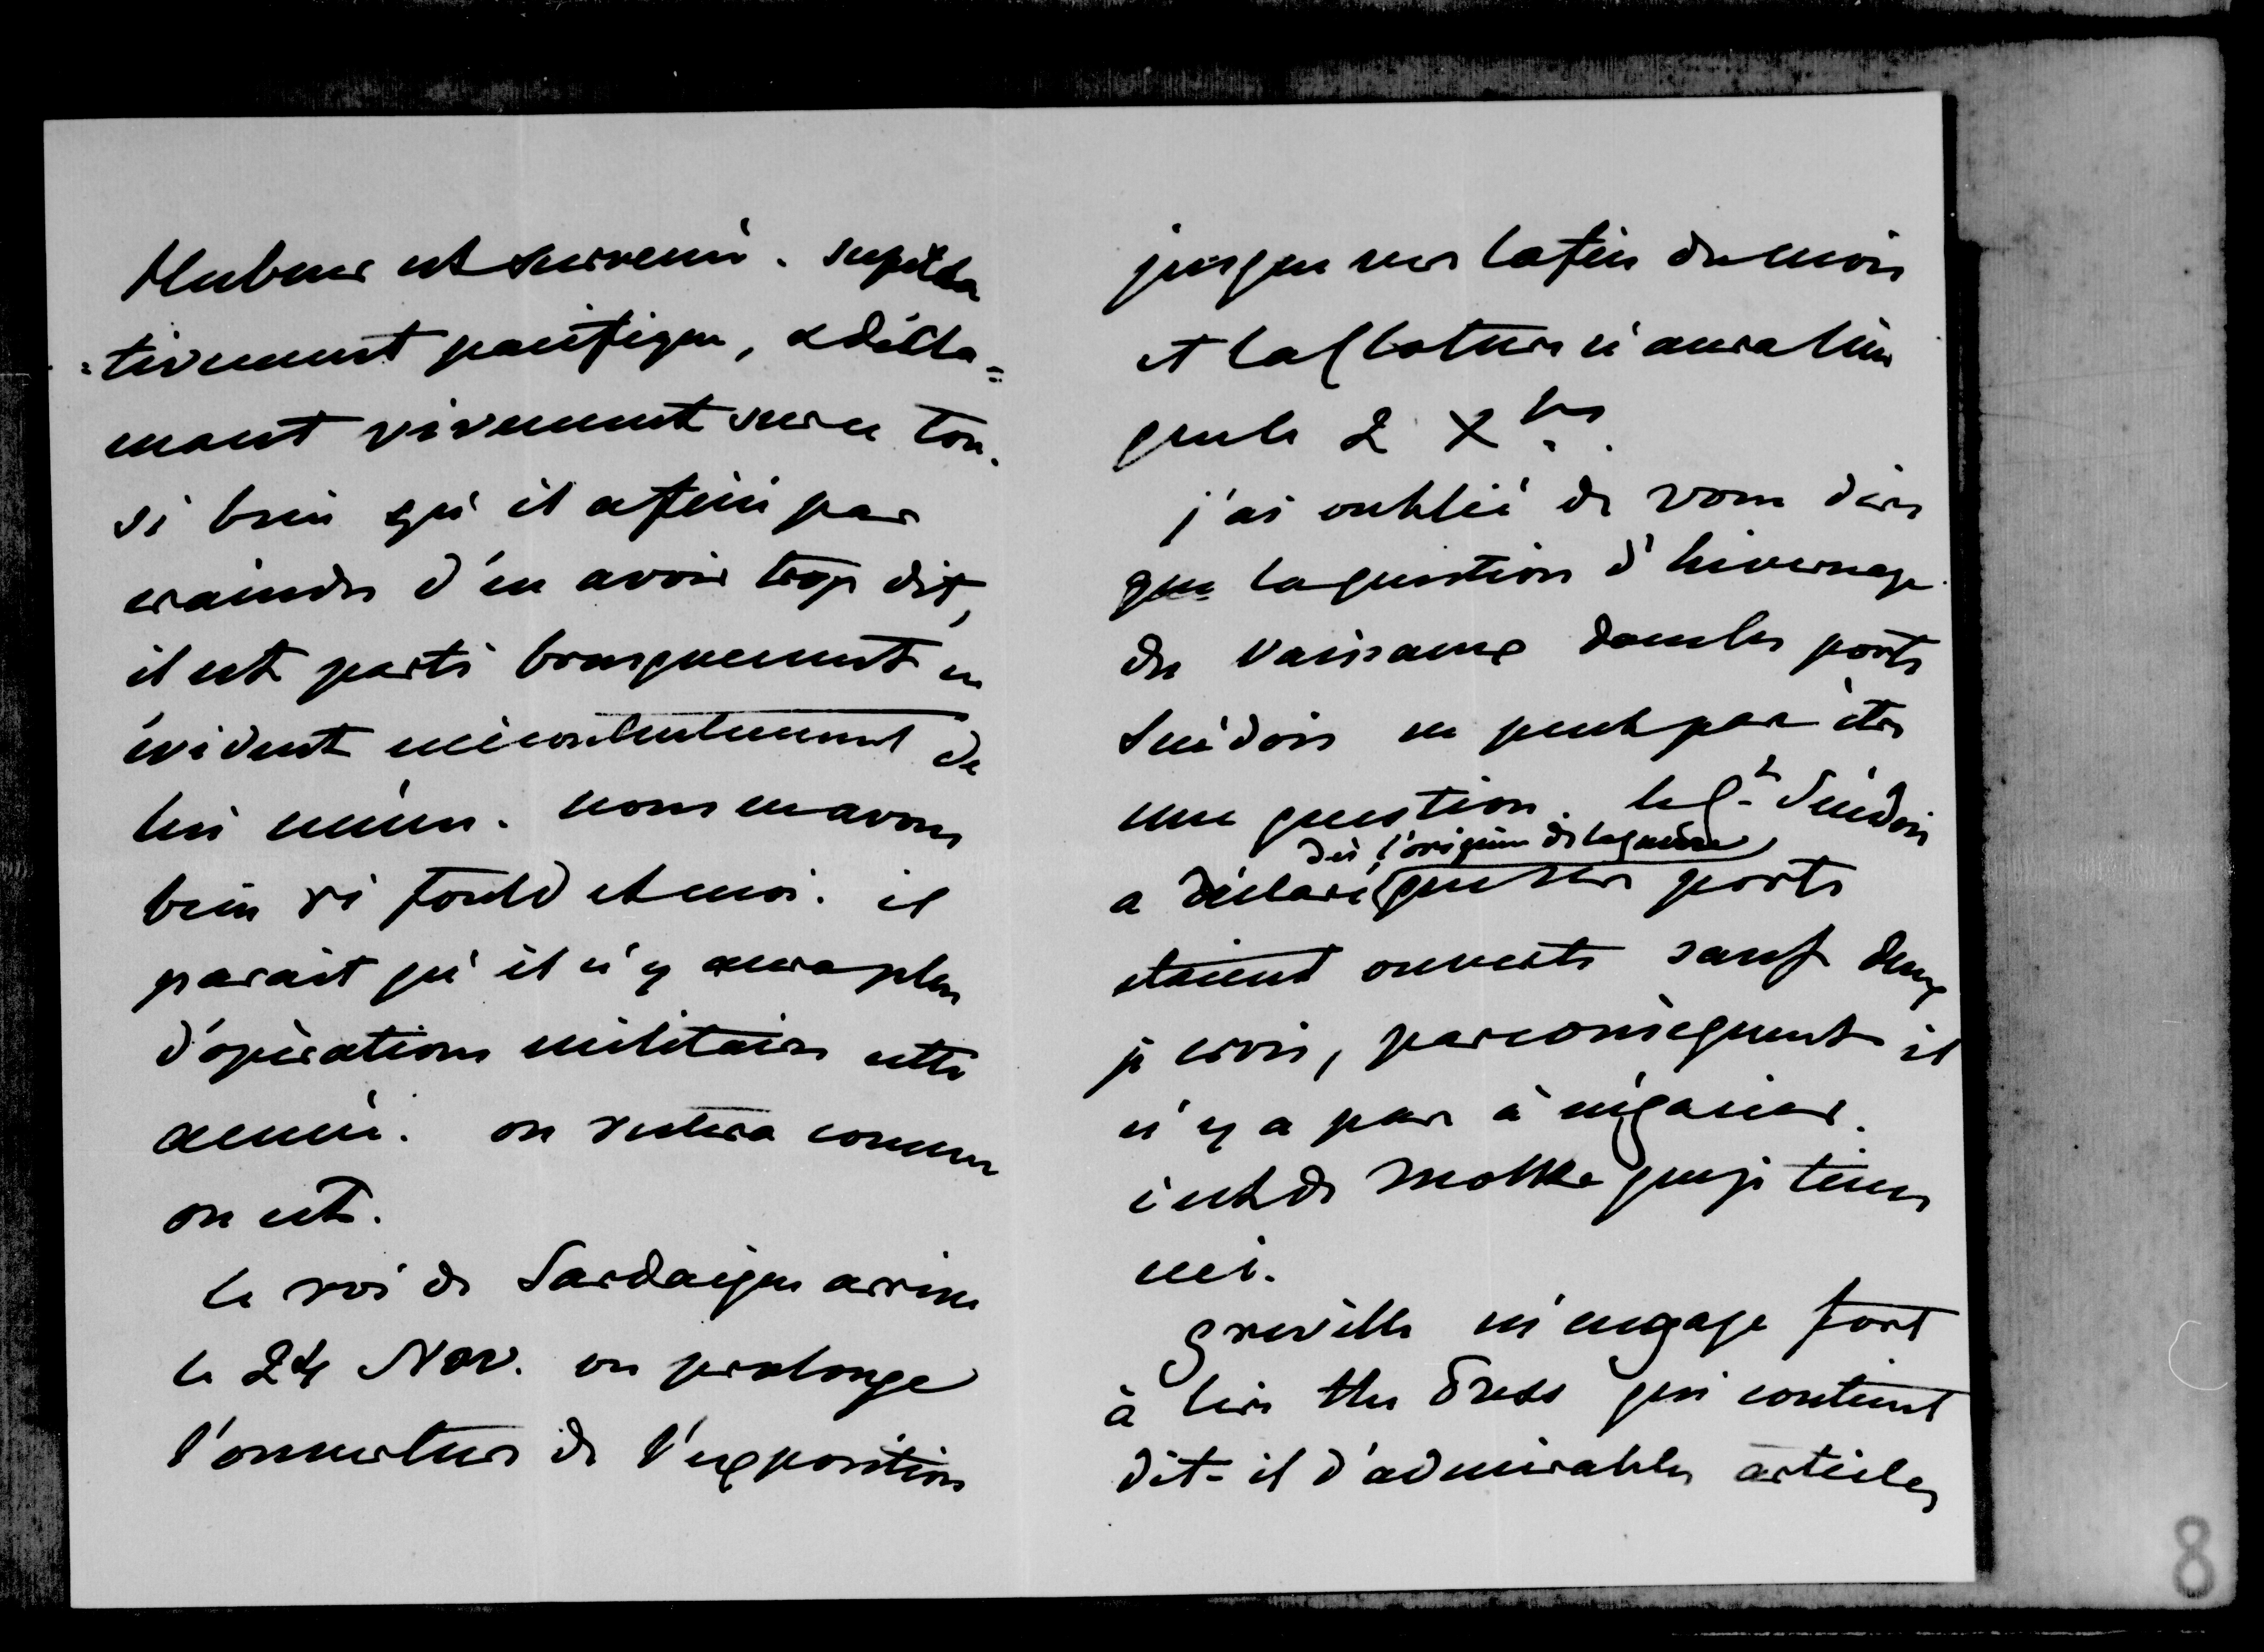 Hubner est survenu. superla
=tivement pacifique, & décla=
mant vivement sur ce ton.
si bien qu'il a fini par
craindre d'en avoir trop dit,
il est parti brusquement en
évident mécontentement de
lui même. nous en avons
bien ri fould et moi. il
parait qu'il n'y aura plus
d'opérations militaires cette
année. on restera comme
on est.
le roi de Sardaigne arrive
le 24 Nov. on prolonge
l'ouverture de l'exposition
jusque vers la fin du mois
et la cloture n'aura lieu
que le 2 Xbre.
j'ai oublié de vous dire
que la question d'hivernage
des vaisseaux dans les ports
Suédois ne peut pas être
une question. le Gt Suédois
a déclaré dès l'origine de la guerre que ses ports
etaient ouverts sauf deux
je crois, par conséquent il
n'y a pas à négocier.
c'est de Moltke que je tiens
ceci.
Greville m'engage fort
à lire the Press qui contient
dit-il d'admirables articles
8